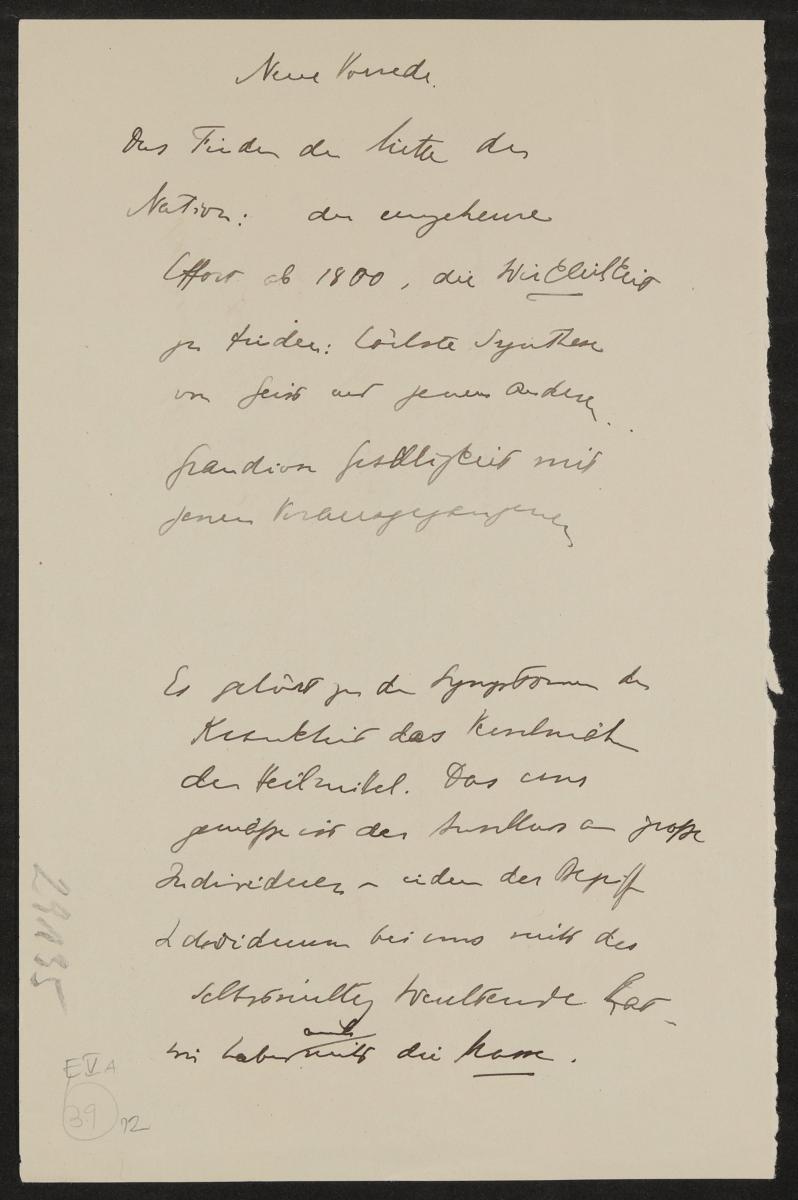 Neue Vorrede.
Das Finden der Mitte der
Nation: der ungeheure
Effort ab 1800, die Wirklichkeit
zu finden: höchste Synthese
von Geist und jenem Anderen..
Grandiose Geselligkeit mit
jenen Vorausgegangenen
Es gehört zu den Symptomen der
Krankheit das Verschmähen
der Heilmittel. Das uns
gemäße ist der Anschluss an große
Individuen – indem der Begriff
Individuum bei uns nicht das
hat
wir haben nicht auch die Masse.
29A35
E V A
39
12